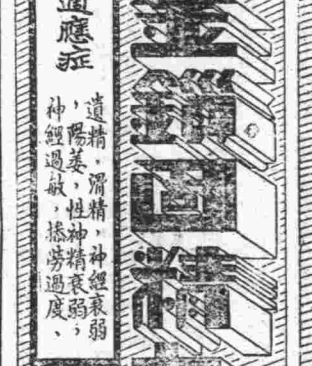 適應症
遺精，滑精，神經衰弱
，陽萎，性神精衰弱；
神經過敏，操勞過度、
固精